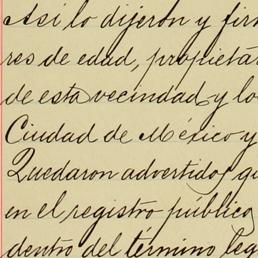 Así lo dijeron y fir
res de edad, propieta
de esta vecindad y lo
Ciudad de México y
Quedaron advertidos qu
en el registro público
dentro del término leg